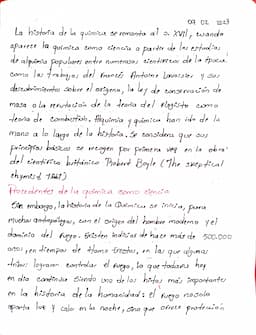 07 02 2023
La historia de la química se remonta al s. XVII, cuando
aparece la química como ciencia a partir de los estudios
de alquimia populares entre numerosos científicos de la época.
como los trabajos del francés Antoine Lavoisier y sus
descubrimientos sobre el oxígeno, la ley de conservación de
masa o la refutación de la teoría del flogisto como
teoría de combustión. Alquimia y química han ido de la
mano a lo largo de la historia. Se considera que sus
principios básicos se recogen por primera vez en la obra
del científico británico Robert Boyle (The skeptical
chymist 1661)
Precedentes de la química como ciencia
Sin embargo, la historia de la Química se inicia, para
muchos antropólogos, con el origen del hombre moderno y el
dominio del fuego. Existen indicios de hace más de 500.000
años, en tiempos de Homo Erectus, en las que algunas
tribus lograron controlar el fuego, lo que todavía hoy
en día continúa siendo uno de los hitos más importantes
en la historia de la humanidad: el fuego no solo
aporta luz y calor en la noche, sino que ofrece protección